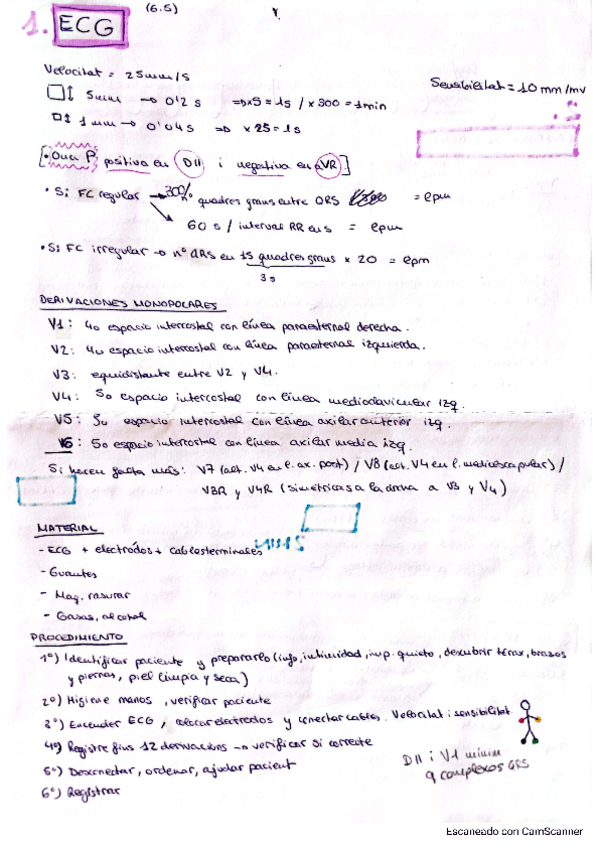 (6.5)
1. ECG
Velocitat = 25mm/s
Sensibilitat = 10 mm/mv
5mm → 0'2 s ⇒ x5 = 1s / x 300 = 1min
1mm → 0'04s ⇒ x 25 = 1s
[• Ona P positiva en DII i negativa en aVR]
• Si FC regular → 300/nº quadres grans entre QRS = epm
60 s / interval RR en s = epm
• Si FC irregular → nº QRS en 15 quadres grans x 20 = epm
3s
DERIVACIONES MONOPOLARES
V1: 4o espacio intercostal con línea paraesternal derecha.
V2: 4o espacio intercostal con línea paraesternal izquierda.
V3: equidistante entre V2 y V4.
V4: 5o espacio intercostal con línea medioclavicular izq.
V5: 5o espacio intercostal con línea axilar anterior izq.
V6: 5o espacio intercostal con línea axilar media izq.
Si hacen falta más: V7 (alt. V4 en l. ax. post) / V8 (alt. V4 en l. medioescapular) /
V3R y V4R (simétricas a la drcha a V3 y V4)
MATERIAL
- ECG + electrodos + cables terminales
- Guantes
- Maq. rasurar
- Gasas, alcohol
PROCEDIMIENTO
1º) Identificar paciente y prepararlo (info, intimidad, quieto, descubrir tórax, brazos
y piernas, piel limpia y seca)
2º) Higiene manos, verificar paciente
3º) Encender ECG, colocar electrodos y conectar cables. Velocitat i sensibilitat.
4º) Registre fins 12 derivacions → verificar si correcte
5º) Desconectar, ordenar, ajudar pacient
6º) Registrar
DII i V1 mínim
9 complexos QRS
Escaneado con CamScanner